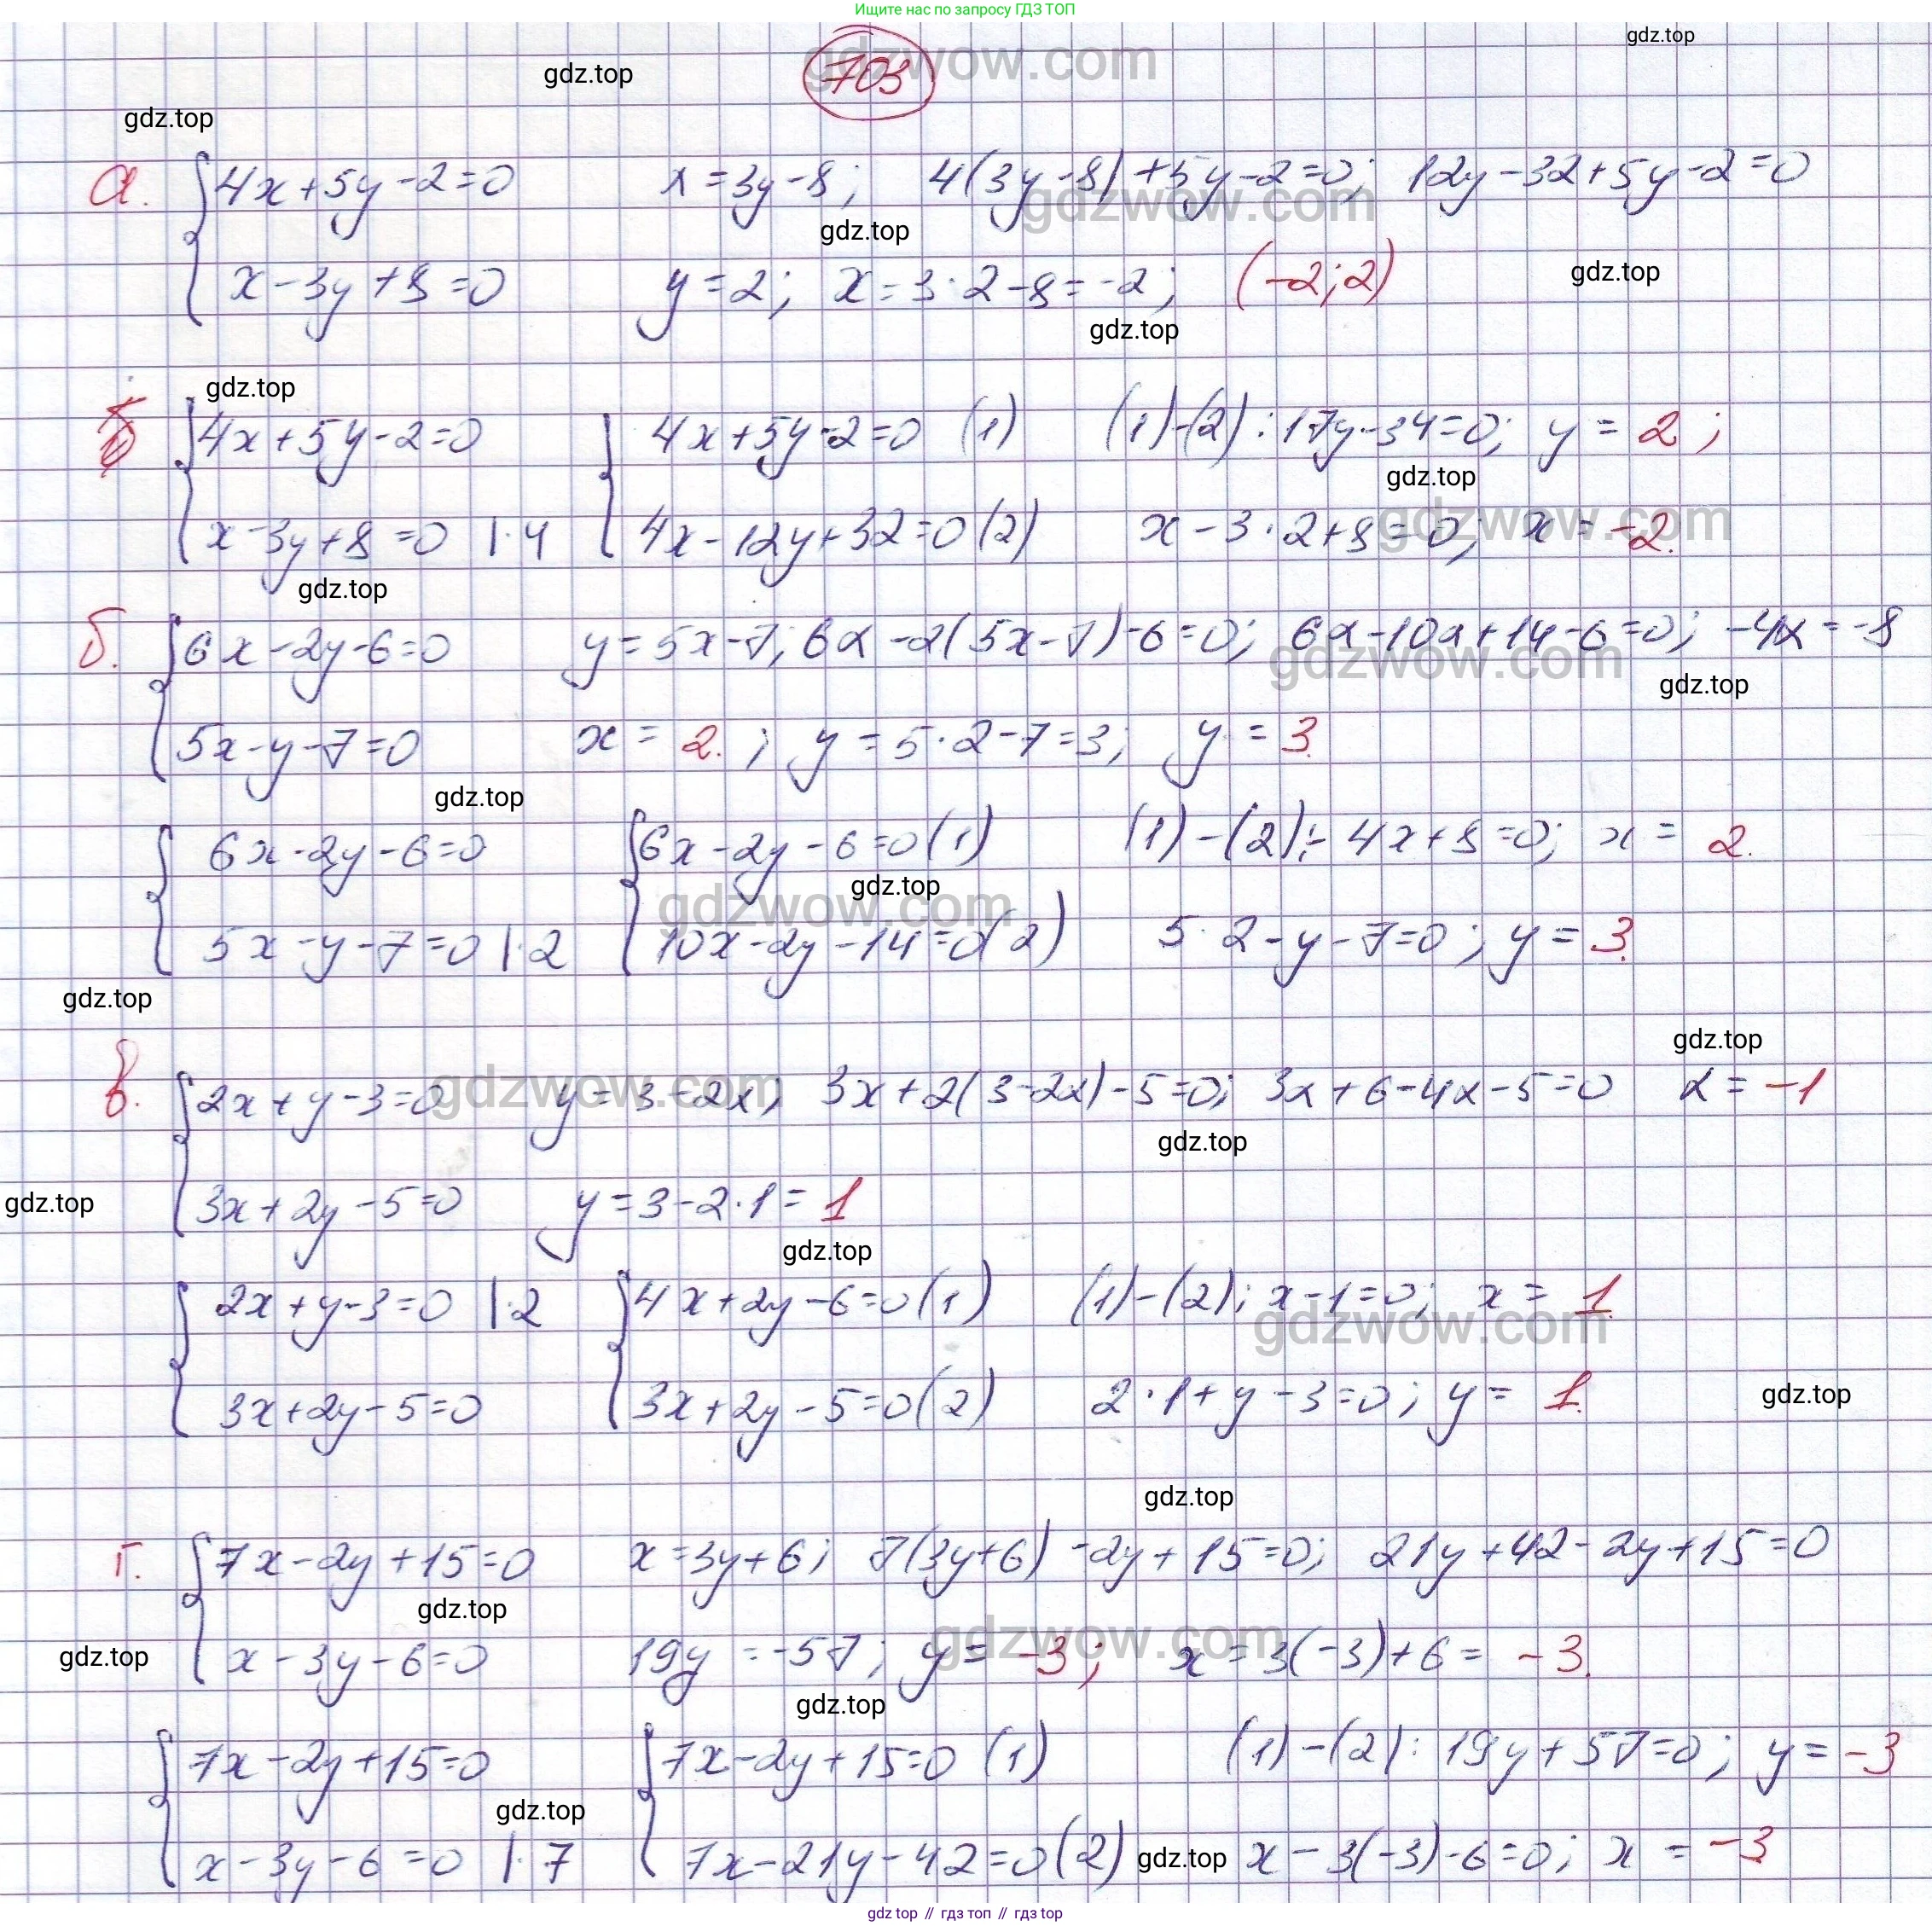 Ищите нас по запросу ГДЗ ТОП
gdz.top
gdzwow.com
703
gdz.top
gdz.top
а. 4x+5y-2=0 x=3y-8; 4(3y-8)+5y-2=0; 12y-32+5y-2=0
gdzwow.com
gdz.top
x-3y+8=0 y=2; x=3·2-8=-2; (-2;2)
gdz.top
gdz.top
gdz.top
4x+5y-2=0 4x+5y-2=0 (1) (1)-(2): 17y-34=0; y=2;
gdz.top
gdzwow.com
x-3y+8=0 |·4 4x-12y+32=0 (2) x-3·2+8=0; x=-2.
gdz.top
б. 6x-2y-6=0 y=5x-7; 6x-2(5x-7)-6=0; 6x-10x+14-6=0; -4x=-8
gdzwow.com
gdz.top
5x-y-7=0 x=2.; y=5·2-7=3; y=3.
gdz.top
6x-2y-6=0 6x-2y-6=0 (1) (1)-(2):-4x+8=0; x=2.
gdz.top
gdzwow.com
5x-y-7=0 |·2 10x-2y-14=0 (2) 5·2-y-7=0; y=3.
gdz.top
gdz.top
в. 2x+y-3=0 y=3-2x; 3x+2(3-2x)-5=0; 3x+6-4x-5=0 x=-1
gdzwow.com
gdz.top
3x+2y-5=0 y=3-2·1=1
gdz.top
gdz.top
2x+y-3=0 |·2 4x+2y-6=0 (1) (1)-(2); x-1=0; x=1.
gdzwow.com
3x+2y-5=0 3x+2y-5=0 (2) 2·1+y-3=0; y=1.
gdz.top
gdz.top
г. 7x-2y+15=0 x=3y+6; 7(3y+6)-2y+15=0; 21y+42-2y+15=0
gdz.top
gdzwow.com
gdz.top
x-3y-6=0 19y=-57; y=-3; x=3(-3)+6=-3.
gdz.top
7x-2y+15=0 7x-2y+15=0 (1) (1)-(2): 19y+57=0; y=-3
gdz.top
x-3y-6=0 |·7 7x-21y-42=0 (2) x-3(-3)-6=0; x=-3
gdz.top
gdz.top // гдз топ // гдз top